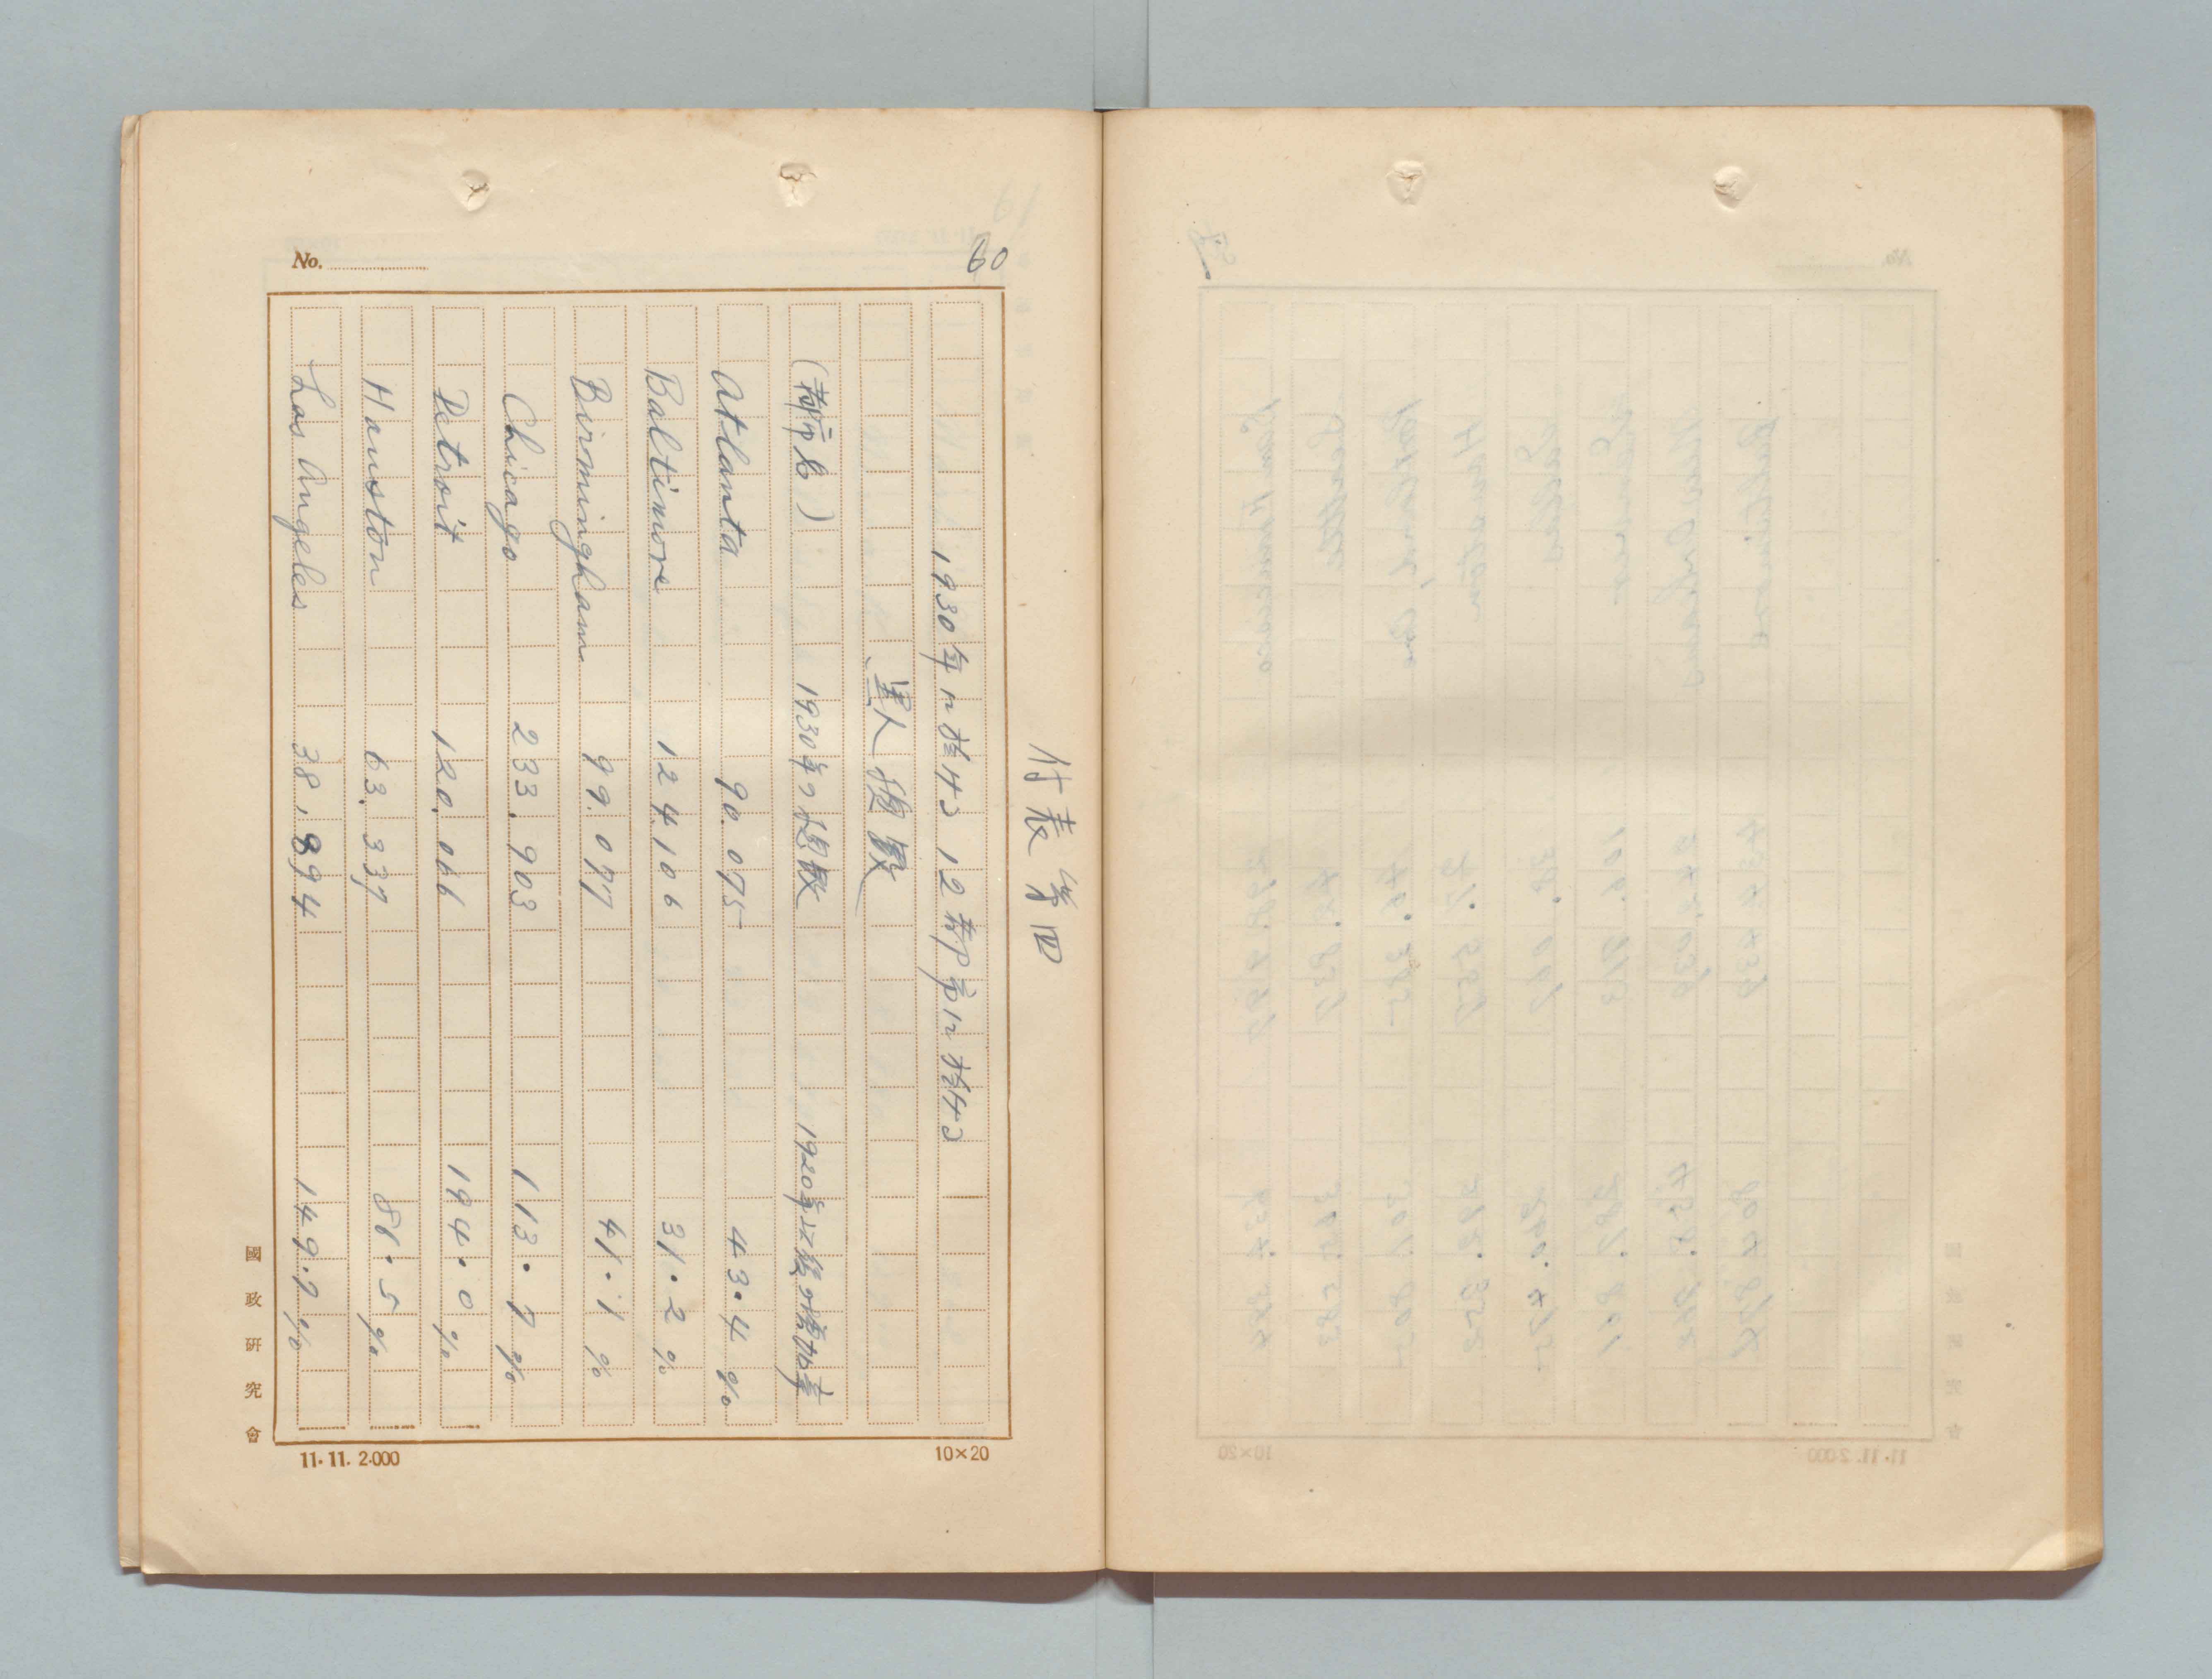 60
No.
付表第四
1930年ニ於ケル 12都市ニ於ケル
黒人総数
(都市名) 1930年ノ総数 1920年以後ノ増加率
Atlanta 90.075 43.4 %
Baltimore 124.106 31.2 %
Birmingham 99.077 41.1 %
Chicago 233.903 113.7 %
Detroit 120.066 194.0 %
Houston 63.337 86.5 %
Los Angeles 38,894 149.7 %
國政研究會
11.11. 2.000
10×20